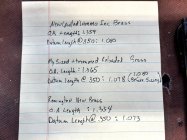 New pulled Lommons Inc Brass
OA Length 1.354
Datum length @ 350: 1.080
My sized + trimmed Reloaded Brass
OAL Length: 1.365
Datum length @ 350: 1.078 (1.080)
Remington New Brass
OA Length: 1.354
Datum Length @ 350: 1.073